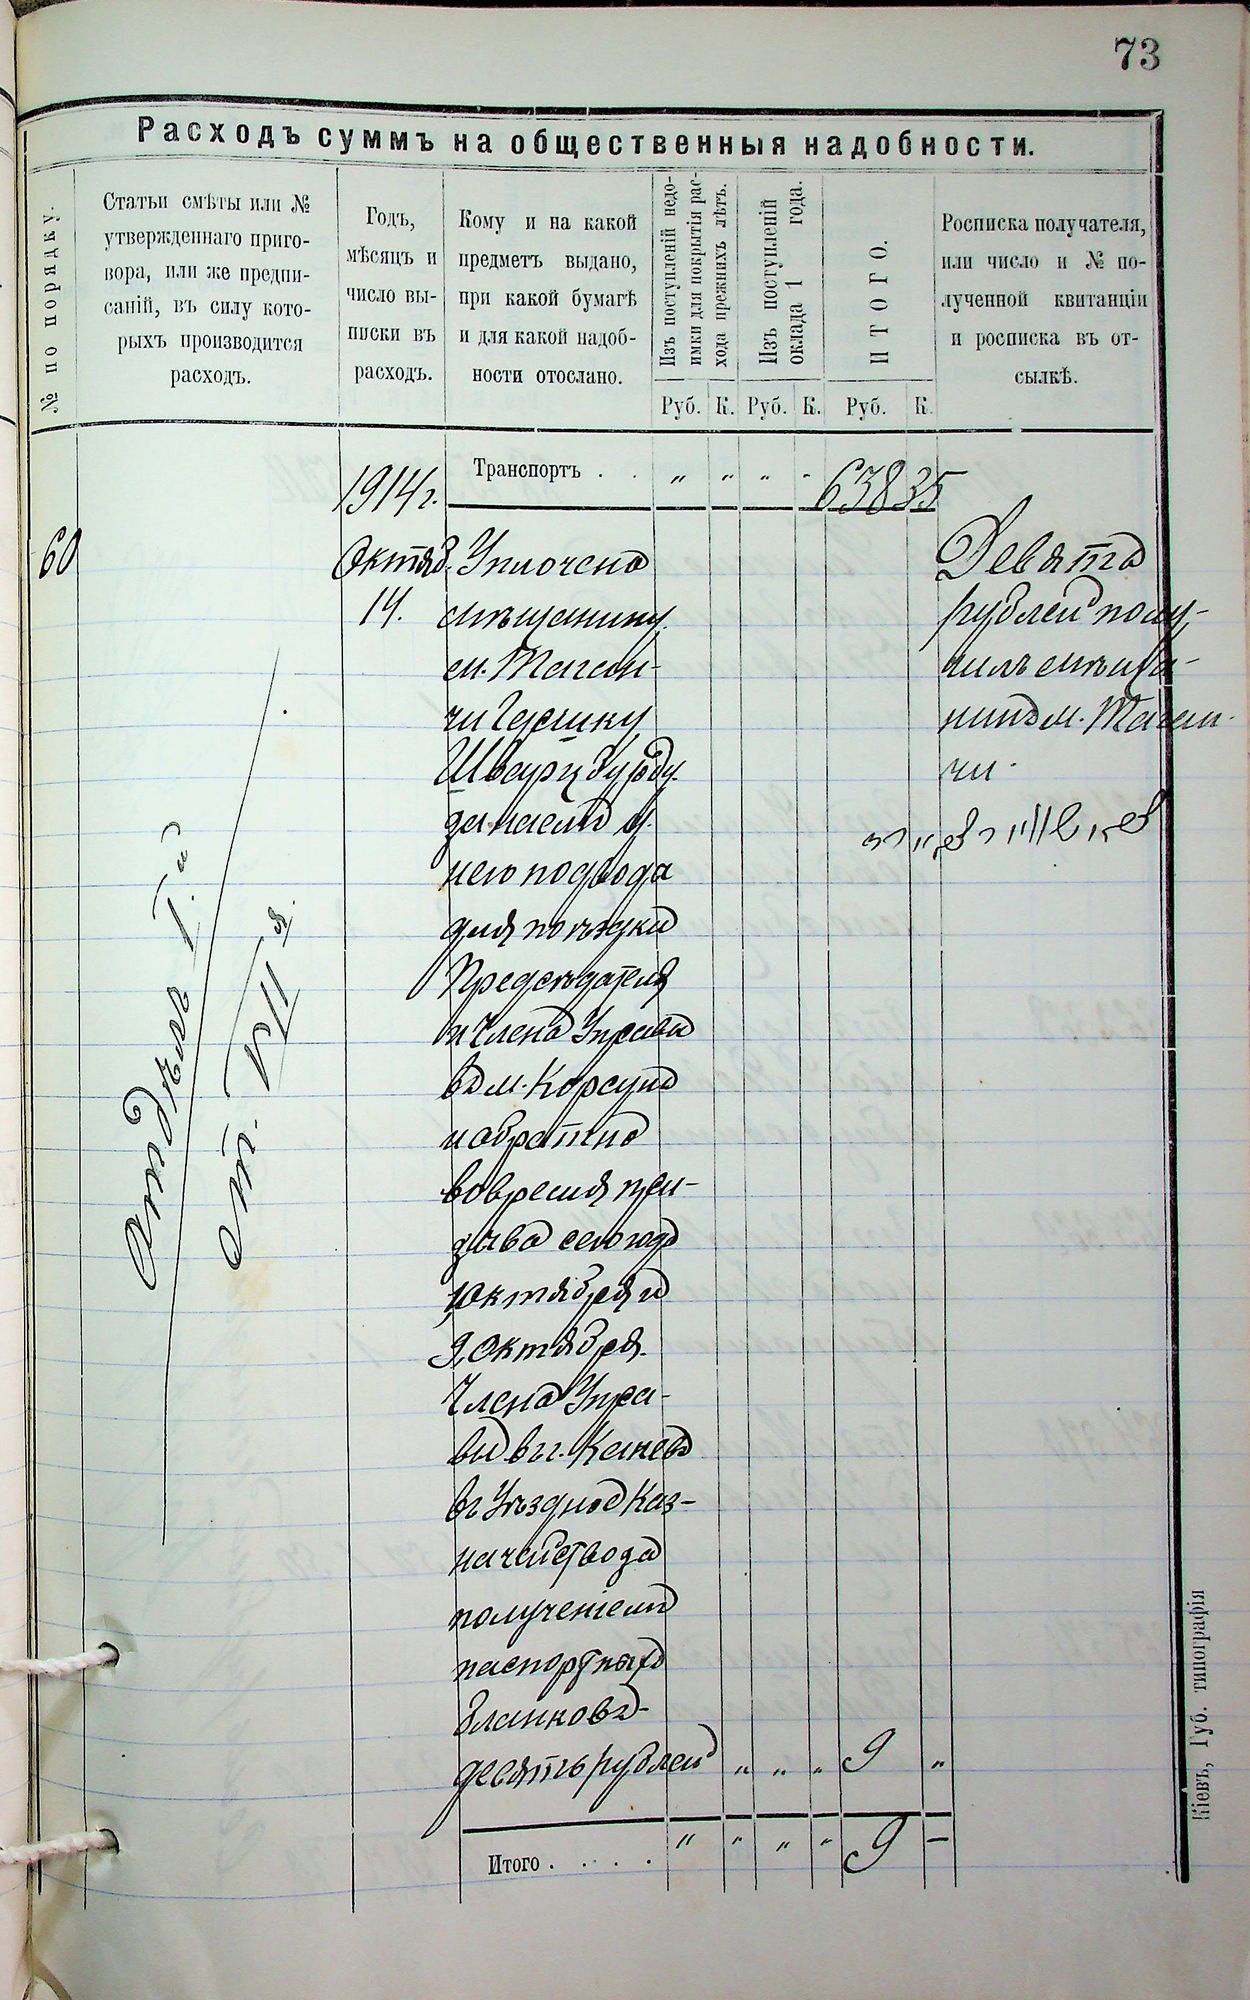 73
Расходъ суммъ на общественныя надобности.
№ по порядку.
Статьи смѣты или №
утвержденнаго приго-
вора, или же предпи-
саній, въ силу кото-
рыхъ производится
расходъ.
Годъ,
мѣсяцъ и
число вы-
писки въ
расходъ.
Кому и на какой
предметъ выдано,
при какой бумагѣ
и для какой надоб-
ности отослано.
Изъ поступленій недо-
имки для покрытія рас-
хода прежнихъ лѣтъ.
Изъ поступленій
оклада 1 года.
ИТОГО.
Росписка получателя,
или число и № по-
лученной квитанціи
и росписка въ от-
сылкѣ.
Руб. К. Руб. К. Руб. К.
1914 г.
Транспортъ . . " " " " 638 35
60
Октяб.
14.
Отдѣлъ I.й
ст. VII я.
Уплочено
мѣщанину
м. Таган-
чи Гершку
Шварцбурду
за наемъ у
него подвода
для поѣздки
Предсѣдателя
и Члена Управы
въ м. Корсунь
и обратно
во время при-
зыва сего года
1 октября и
9, октября
Члена Упра-
вы въ г. Каневъ
въ Уѣздное Каз-
начейство за
полученіемъ
паспортныхъ
бланковъ-
девять рублей " " " 9 "
Девять
рублей полу-
чилъ мѣща-
нинъ м. Таган-
чи
Итого . . . . " " " " 9 —
Кіевъ, Губ. типографія